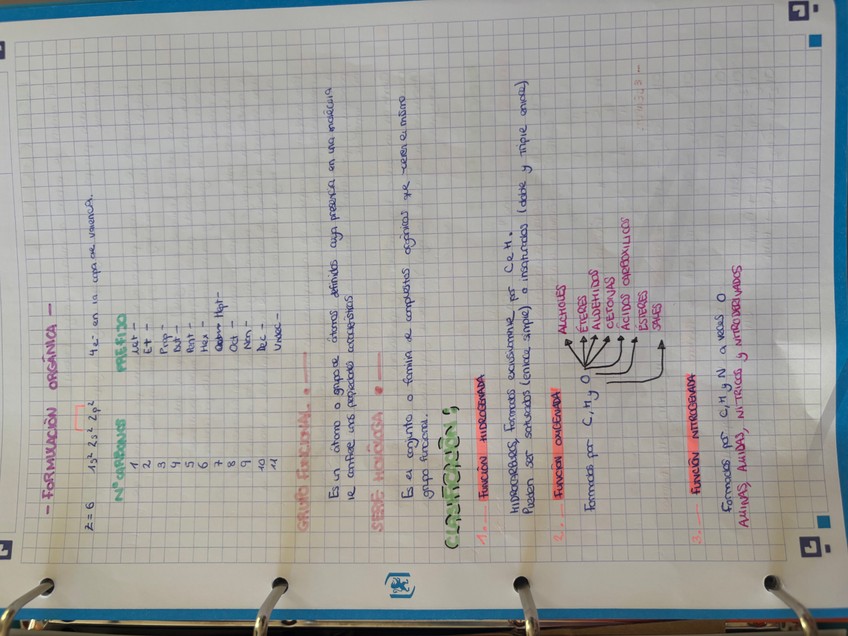 - FORMULACIÓN ORGÁNICA -
Z = 6 1s² 2s² 2p² 4e⁻ en la capa de valencia.
Nº CARBONOS PREFIJO
1 Met -
2 Et -
3 Prop -
4 But -
5 Pent -
6 Hex -
7 Hept -
8 Oct -
9 Non -
10 Dec -
11 Undec -
GRUPO FUNCIONAL.
Es un átomo o grupo de átomos definidos cuya presencia en una molécula
le confiere unas propiedades características
SERIE HOMÓLOGA.
Es el conjunto o familia de compuestos orgánicos que tienen el mismo
grupo funcional.
CLASIFICACIÓN;
1.- FUNCIÓN HIDROGENADA
HIDROCARBUROS, Formados exclusivamente por C e H.
Pueden ser saturados (enlace simple) o insaturados (doble y triple enlace)
2.- FUNCIÓN OXIGENADA
Formados por C, H y O
ALCHOLES
ÉTERES
ALDEHIDOS
CETONAS
ÁCIDOS CARBOXILICOS
ESTERES
SALES
3.- FUNCIÓN NITROGENADA
Formados por C, H y N a veces O
AMINAS, AMIDAS, NITRICOS y NITRODERIVADOS